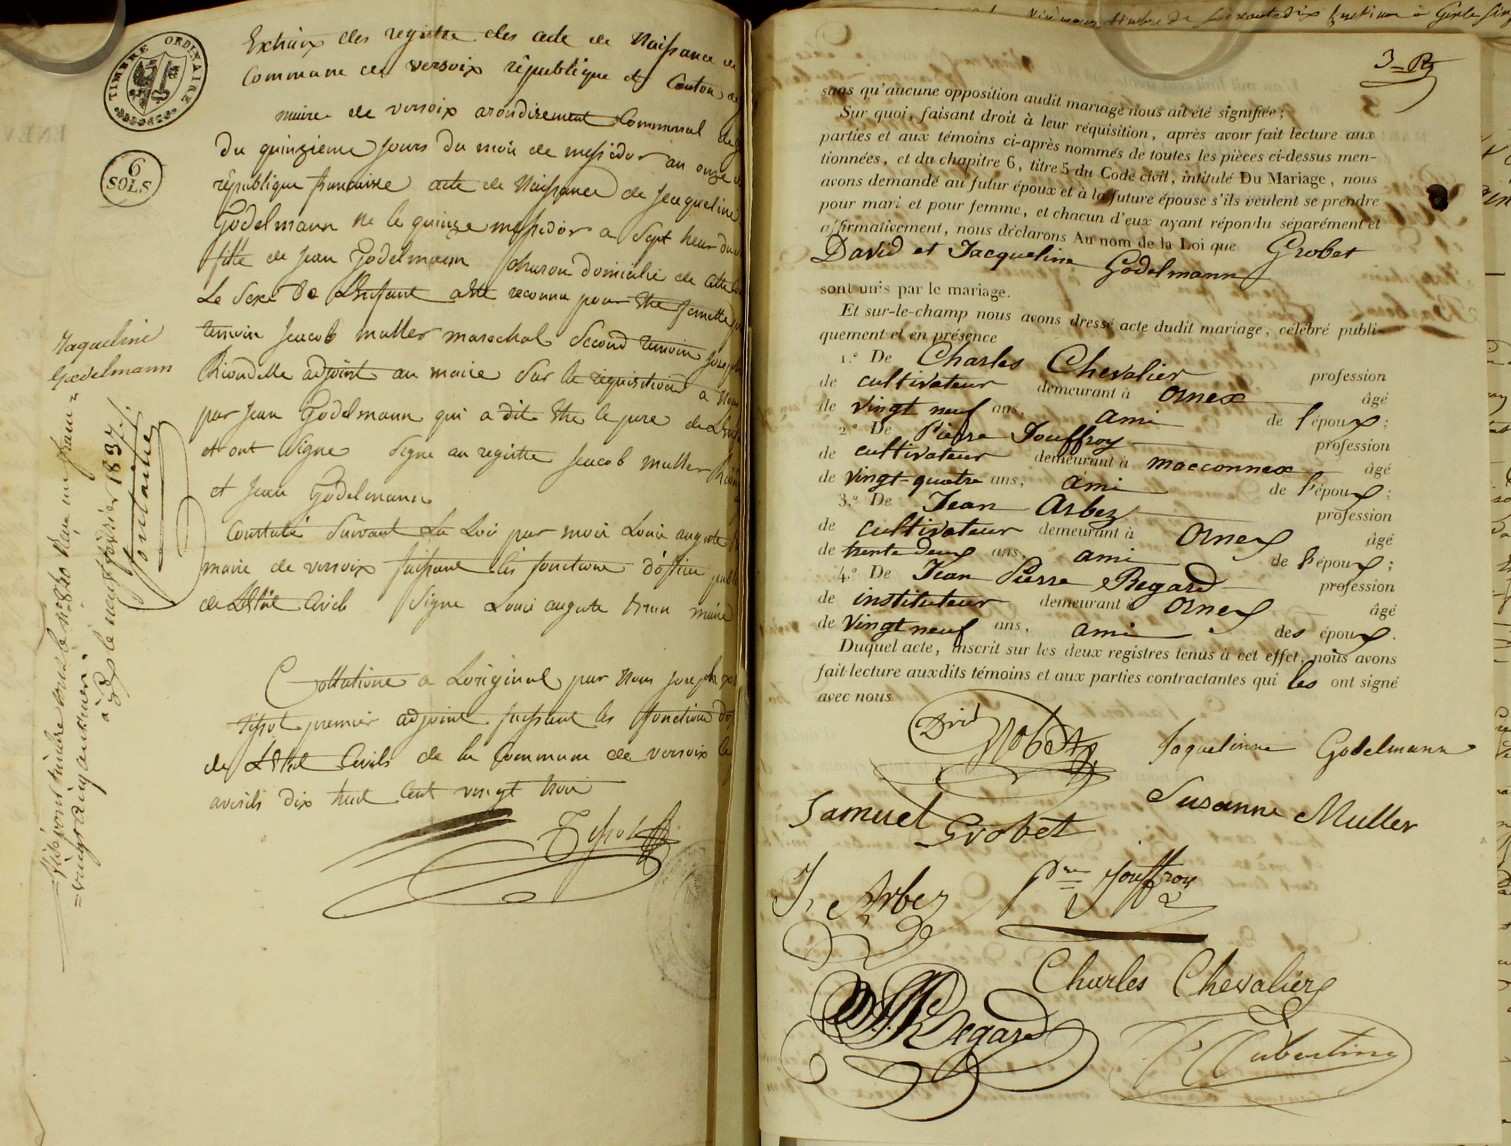 TIMBRE ORDINAIRE
6
SOLS
Extrait des registre des acte de Naissance de
Commune de versoix république et Canton de
maire de versoix arondicement Communal de
Du quinzieme Jours du mois de messidor an onze
république francaise acte de Naissance de Jacqueline
Godelmann Ne le quinze messidor a Sept heur du
fille de Jean Godelmann domicilié de cette
Le Sexe de L'enfant a été reconnu pour être femelle
temoin Jacob muller marechal Second temoin Joseph
Riondelle adjoint au maire Sur la requisition a Nous
par Jean Godelmann qui a dit être le pere de L'
et ont Signe Signe au registre Jacob muller
et Jean Godelmann
Constaté Suivant La Loi par moi Louis auguste
maire de versoix faisant les fonction d'officier
de L'Etat Civil Signe Louis auguste Brun maire
Collationé a Loriginal par Nous Joseph
Tissot premier adjoint faisant les fonction
de L'Etat Civils de la Commune de versoix le
avrils dix huit Cent vingt trois
Tissot
Jaqueline
Godelmann
vingt cinq centimes
à Gex le neuf février 1837
3
sans qu'aucune opposition audit mariage nous ait été signifiée;
Sur quoi, faisant droit à leur réquisition, après avoir fait lecture aux
parties et aux témoins ci-après nommés de toutes les pièces ci-dessus men-
tionnées, et du chapitre 6, titre 5 du Code civil, intitulé Du Mariage, nous
avons demandé au futur époux et à la future épouse s'ils veulent se prendre
pour mari et pour femme, et chacun d'eux ayant répondu séparément et
affirmativement, nous déclarons Au nom de la Loi que Grobet
David et Jacqueline Godelmann
sont unis par le mariage.
Et sur-le-champ nous avons dressé acte dudit mariage, célébré publi-
quement et en présence
1.º De Charles Chevalier profession
de cultivateur demeurant à Ornex âgé
de vingt neuf ans, ami de l'époux;
2.º De Pierre Jouffroy profession
de cultivateur demeurant à maconnex âgé
de vingt-quatre ans, ami de l'époux;
3.º De Jean Arbez profession
de cultivateur demeurant à Ornex âgé
de trente deux ans, ami de l'époux;
4.º De Jean Pierre Regard profession
de instituteur demeurant à Ornex âgé
de vingt neuf ans, ami des époux.
Duquel acte, inscrit sur les deux registres tenus à cet effet, nous avons
fait lecture auxdits témoins et aux parties contractantes qui les ont signé
avec nous
Dvid Grobet Jaquelinne Godelmann
Samuel Grobet Susanne Muller
J. Arbez Pre Jouffroy
Charles Chevalier
Regard